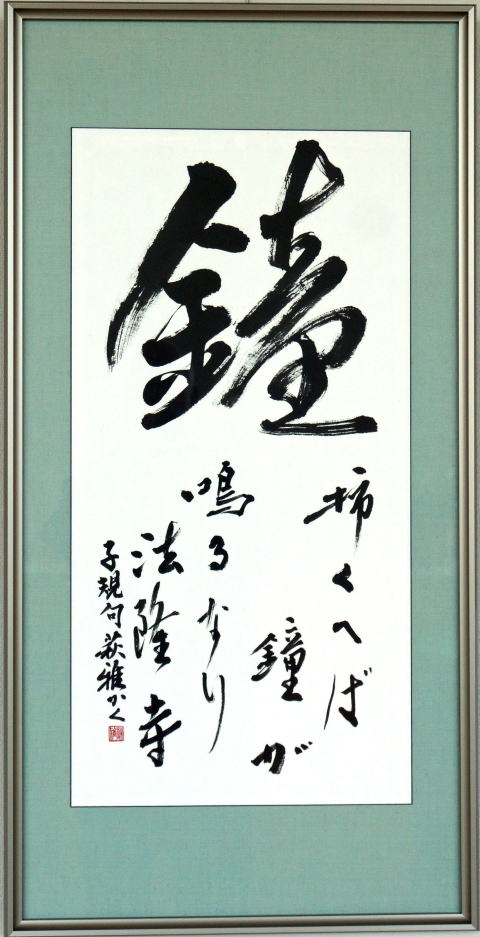 鐘
柿くへば
鐘が
鳴るなり
法隆寺
子規句 萩雅かく